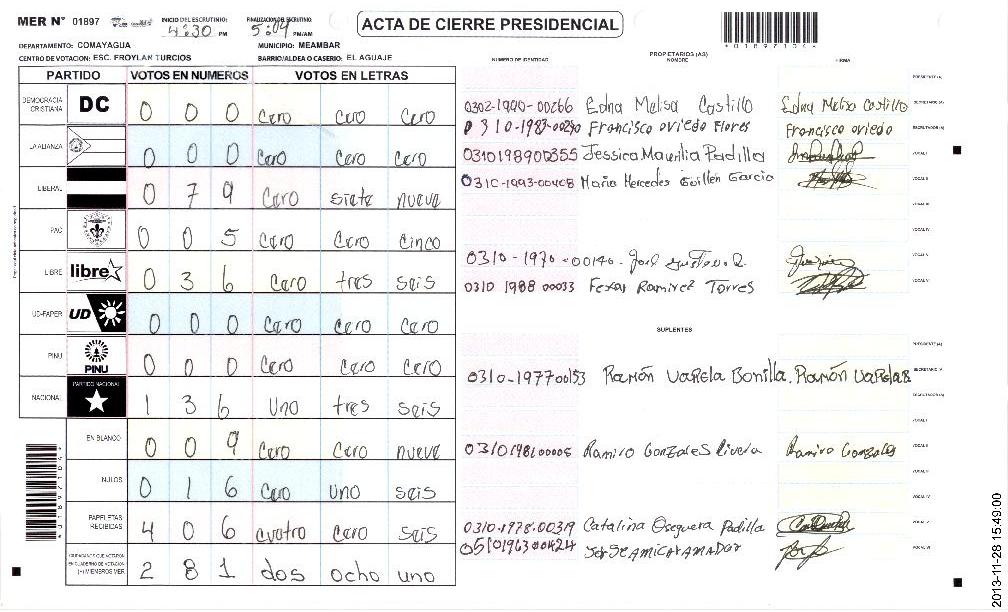 MER N° 01897
INICIO DEL ESCRUTINIO: 4:30 PM
FINALIZACION DEL ESCRUTINIO: 5:09 PM/AM
ACTA DE CIERRE PRESIDENCIAL
DEPARTAMENTO: COMAYAGUA
MUNICIPIO: MEAMBAR
CENTRO DE VOTACION: ESC. FROYLAN TURCIOS
BARRIO/ALDEA O CASERIO: EL AGUAJE
PARTIDO VOTOS EN NUMEROS VOTOS EN LETRAS
DEMOCRACIA CRISTIANA DC 0 0 0 Cero Cero Cero
LA ALIANZA 0 0 0 Cero Cero Cero
LIBERAL 0 7 9 Cero siete nueve
PAC 0 0 5 Cero Cero Cinco
LIBRE libre 0 3 6 Cero tres seis
UD-FAPER UD 0 0 0 Cero Cero Cero
PINU PINU 0 0 0 Cero Cero Cero
NACIONAL PARTIDO NACIONAL 1 3 6 Uno tres seis
EN BLANCO 0 0 9 Cero Cero nueve
NULOS 0 1 6 Cero uno seis
PAPELETAS RECIBIDAS 4 0 6 cuatro Cero seis
CIUDADANOS QUE VOTARON EN CUADERNO DE VOTACION (+) MIEMBROS MER 2 8 1 dos ocho uno
NUMERO DE IDENTIDAD
PROPIETARIOS (AS)
NOMBRE
FIRMA
PRESIDENTE (A)
0302-1990-00266 Edna Melisa Castillo Edna Melisa Castillo SECRETARIO (A)
0310-1983-00290 Francisco oviedo Flores Francisco oviedo ESCRUTADOR (A)
0310198900355 Jessica Padilla VOCAL I
031C-1993-00408 Maria Hercedes Guillén Garcia VOCAL II
VOCAL III
VOCAL IV
0310-1970-00140. VOCAL V
0310 1988 00033 Ramirez Torres VOCAL VI
SUPLENTES
PRESIDENTE (A)
0310-197700153 Ramón Varela Bonilla. Ramón Varela B SECRETARIO (A)
ESCRUTADOR (A)
VOCAL I
0310198100005 Ramiro Gonzales Rivera Ramiro Gonzales VOCAL II
VOCAL III
VOCAL IV
0310-1978-00319 Catalina Oseguera Padilla VOCAL V
0510196300424 VOCAL VI
2013-11-28 15:49:00